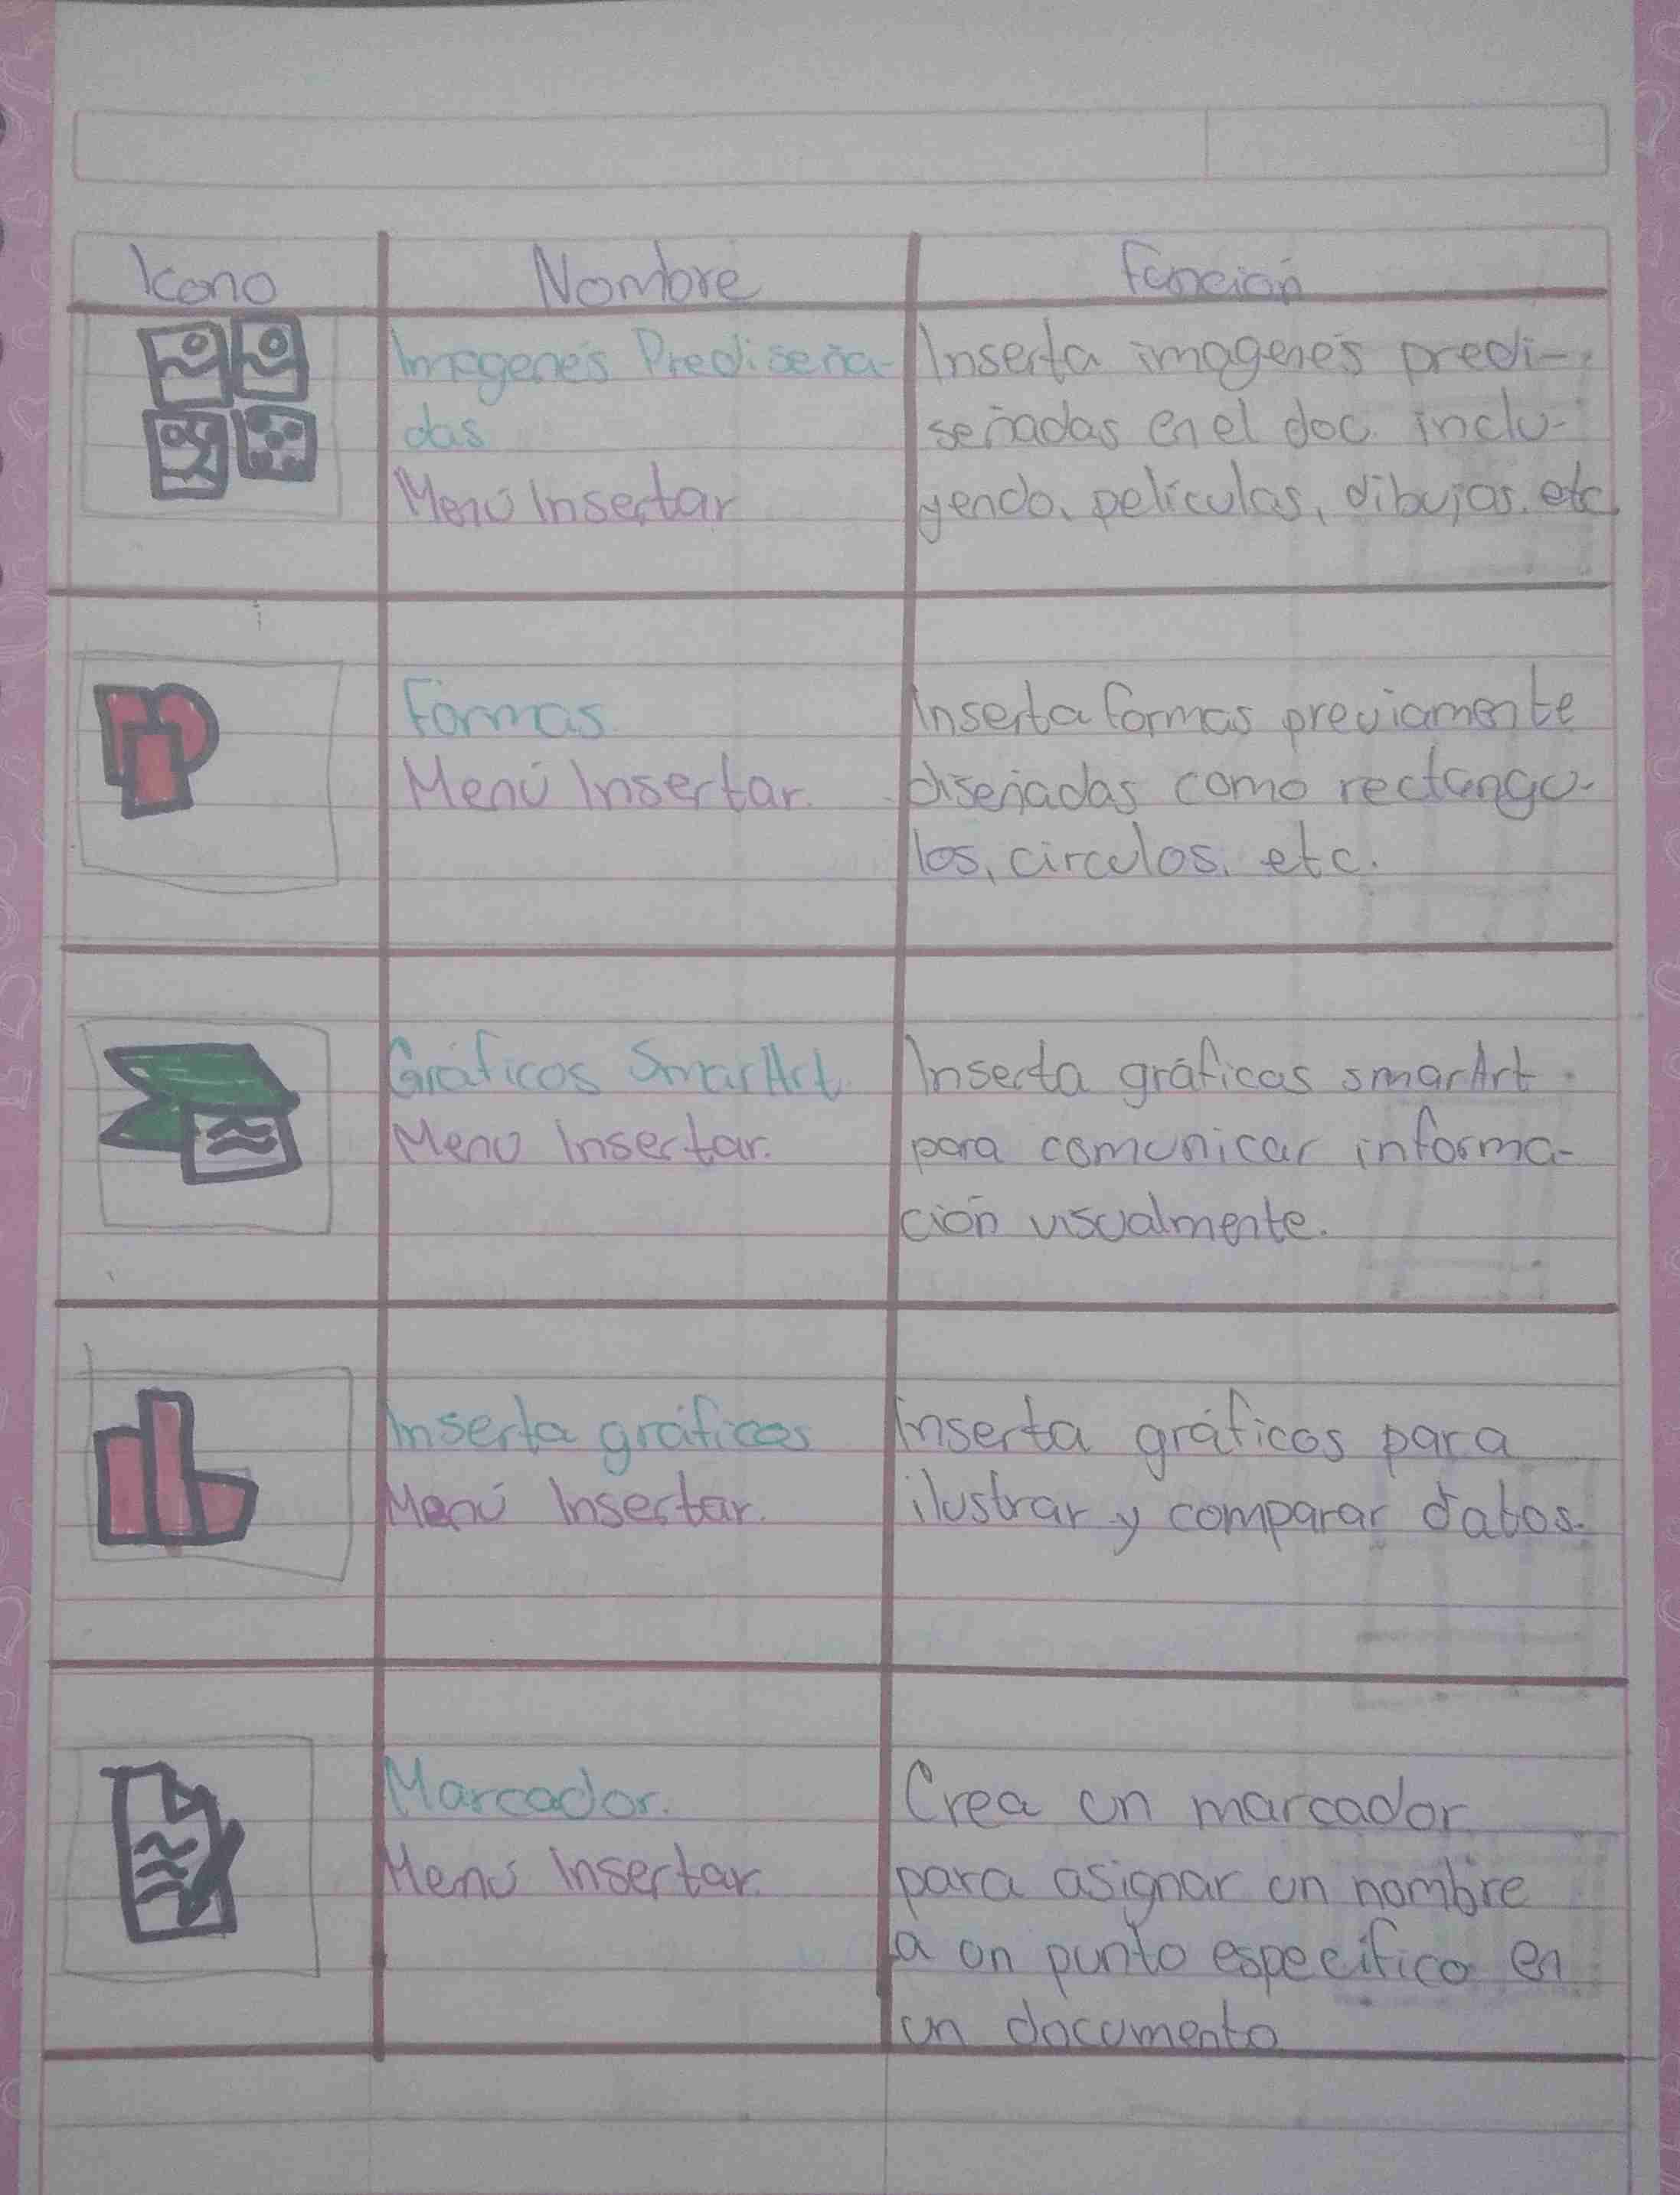 Icono Nombre Función
Imagenes Prediseña-
das
Menú Insertar
Inserta imagenes predi-
señadas en el doc. inclu-
yendo, películas, dibujos, etc
Formas
Menú Insertar.
Inserta formas previamente
diseñadas como rectangu-
los, circulos, etc.
Gráficos SmarArt
Menu Insertar.
Inserta gráficas smarArt
para comunicar informa-
ción visualmente.
Inserta gráficos
Menú Insertar.
Inserta gráficos para
ilustrar y comparar datos.
Marcador.
Menú Insertar.
Crea un marcador
para asignar un nombre
a un punto específico en
un documento